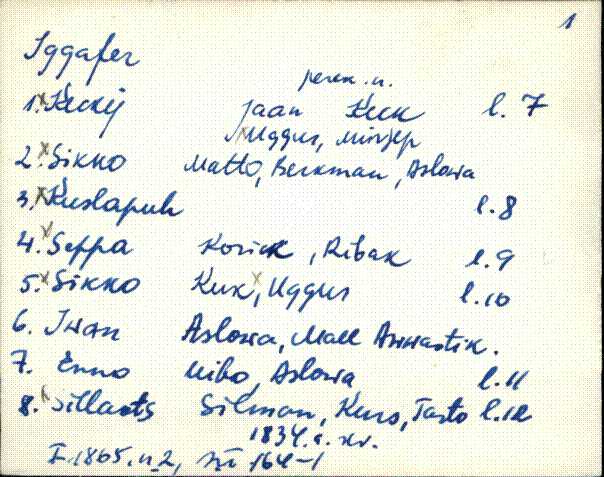 1
Iggafer
peren.n.
1. Keckij Jaan Keck l. 7
Uggus, Minjep
2. Sikko Matto, Berkman, Aslowa
3. Kuslapuh l. 8
4. Seppa Korick, Ribak l. 9
5. Sikko Kuk, Uggus l. 10
6. Iwan Aslowa, Mall Annastik.
7. Enno Uibo, Aslowa l. 11
8. Sillaots Silman, Kurs, Tarto l. 12
1834. a. xv.
F. 1865. n. 2, 164-1